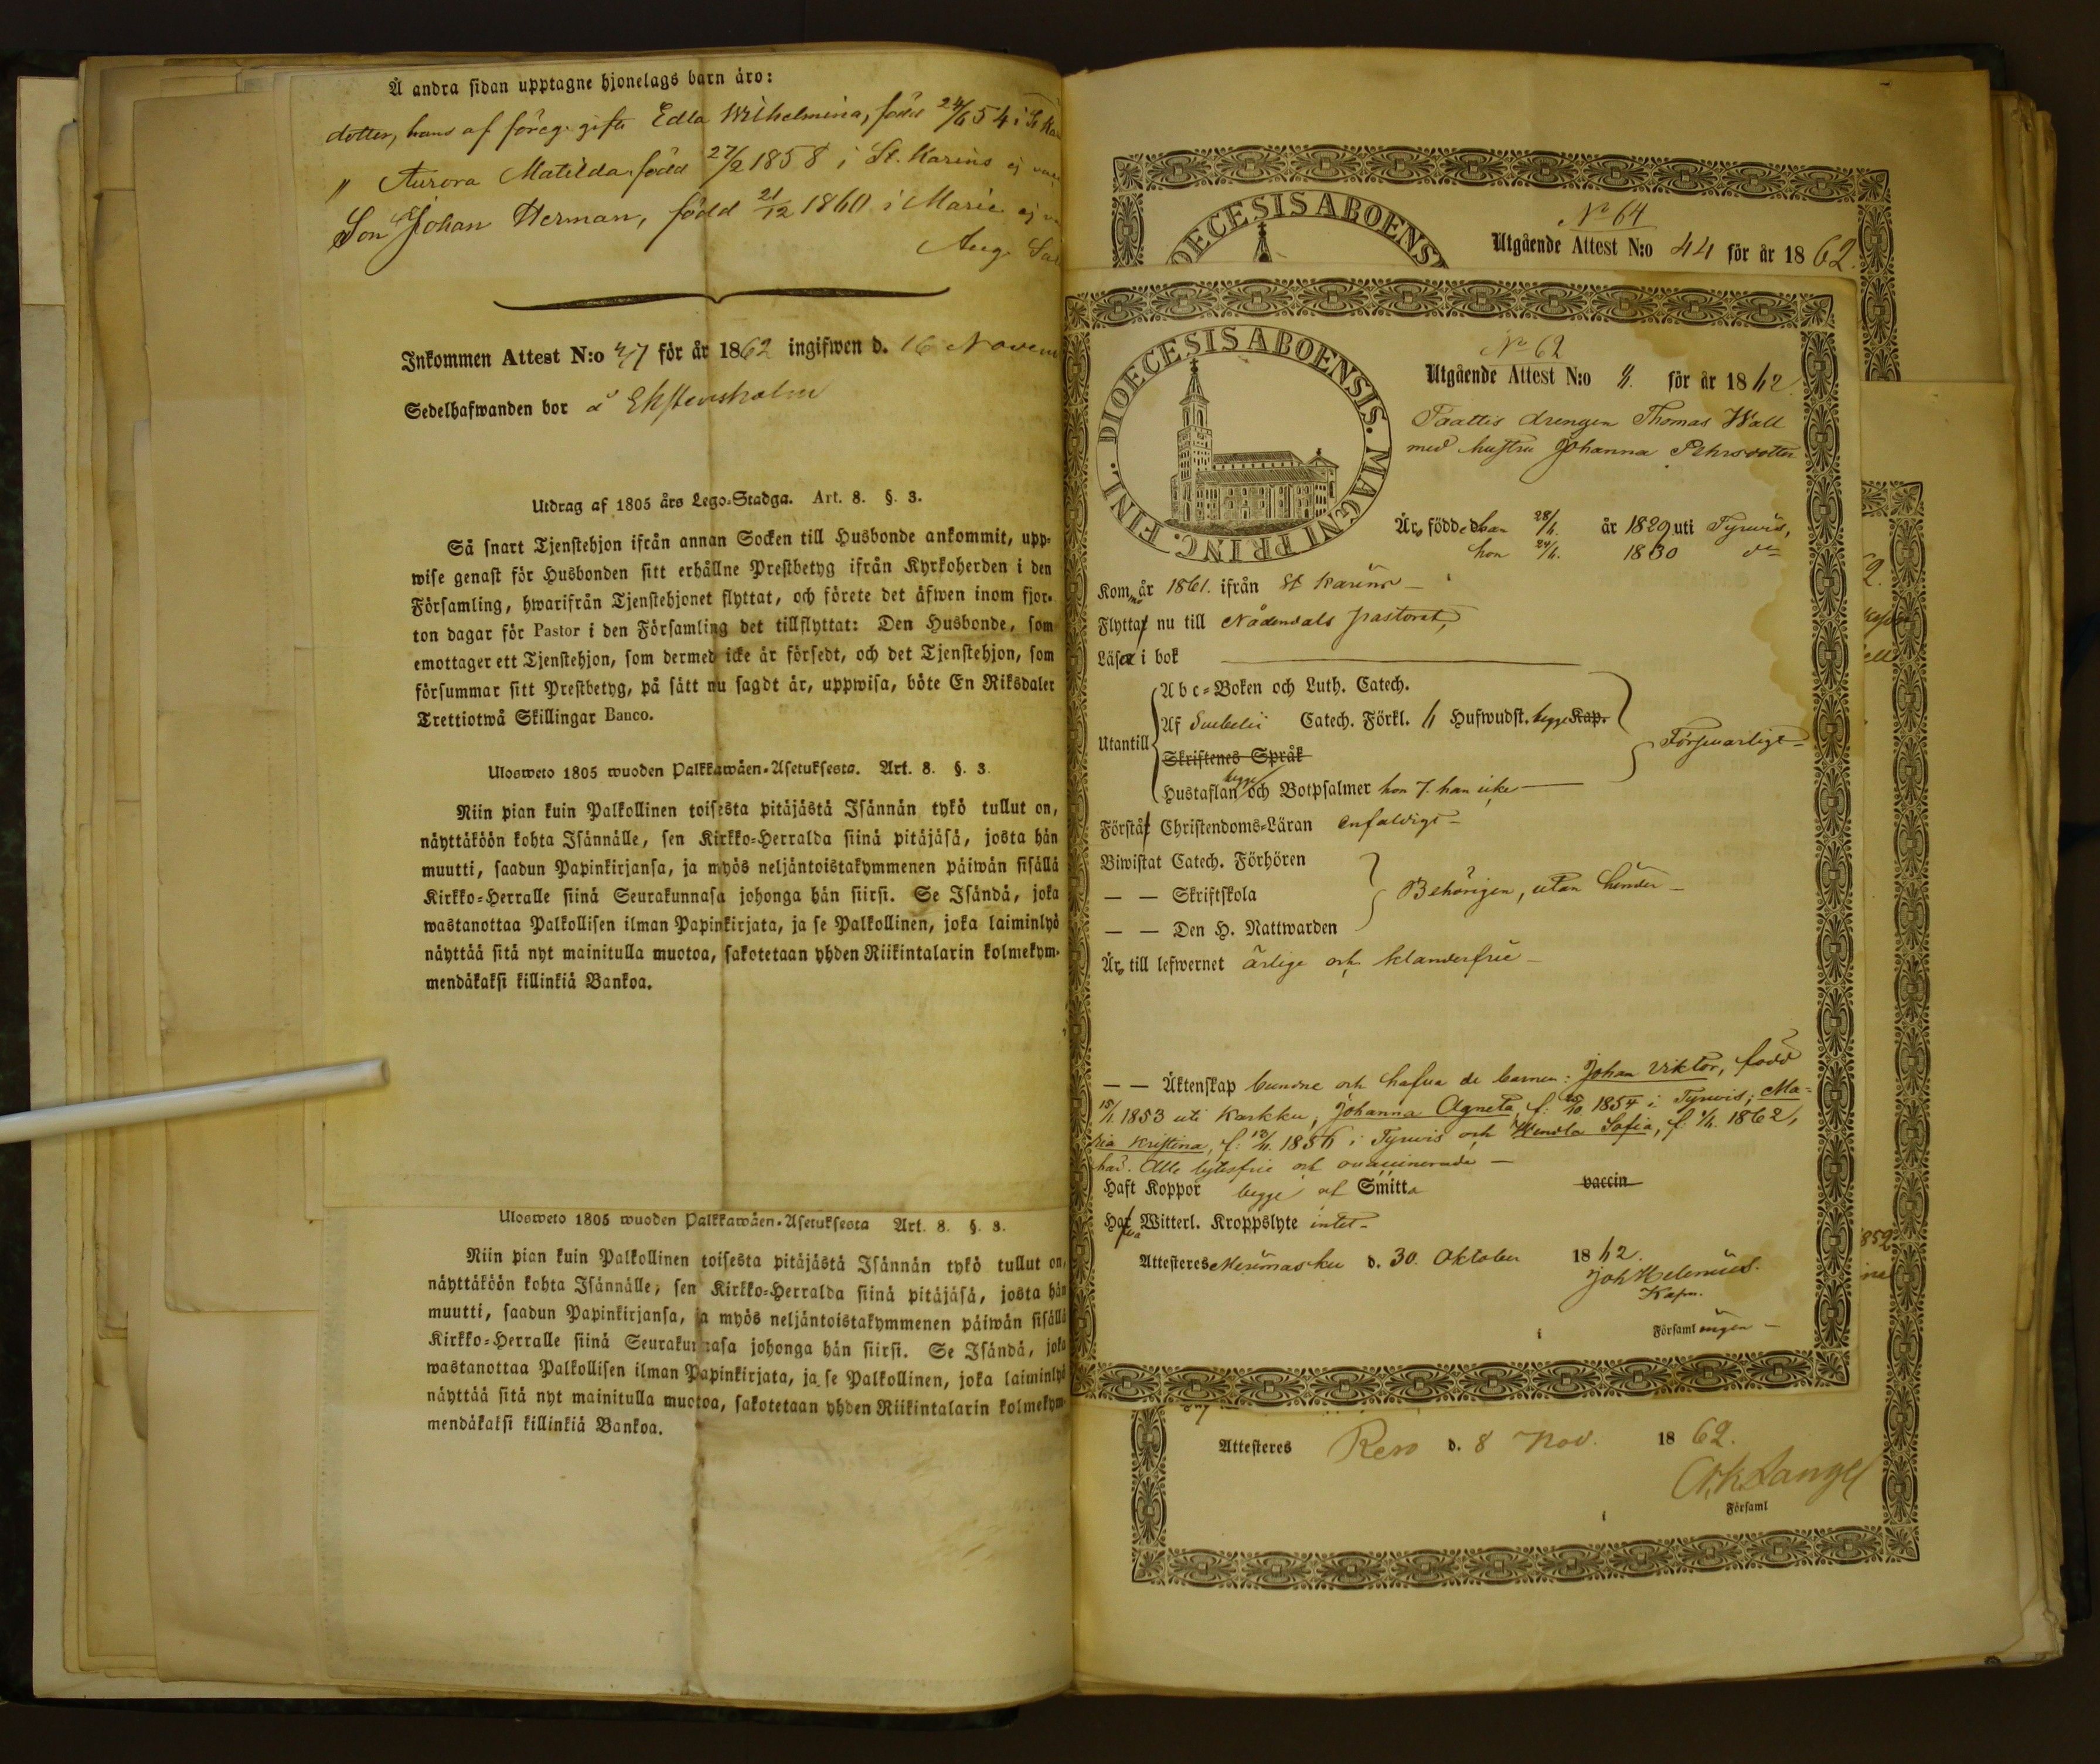 Å andra sidan upptagne hjonelags barn äro:
dotter, hans af föreg. gifte Edla Wilhelmina, född 24/6 54 i St Kar
" Aurora Matilda, född 27/2 1858 i St. Karins ej
Son Johan Herman, född 21/12 1860 i Marie ej
Aug.
Inkommen Attest N:o 47 för år 1862 ingifwen d. 16 Novem
Sedelhafwanden bor å Ekstensholm
Utdrag af 1805 års Lego-Stadga. Art. 8. §. 3.
Så snart Tjenstehjon ifrån annan Socken till Husbonde ankommit, upp-
wise genast för Husbonden sitt erhållne Prestbetyg ifrån Kyrkoherden i den
Församling, hwarifrån Tjenstehjonet flyttat, och förete det äfwen inom fjor-
ton dagar för Pastor i den Församling det tillflyttat: Den Husbonde, som
emottager ett Tjenstehjon, som dermed icke är försedt, och det Tjenstehjon, som
försummar sitt Prestbetyg, på sätt nu sagdt är, uppwisa, böte En Riksdaler
Trettiotwå Skillingar Banco.
Ulosweto 1805 wuoden Palkkawäen-Asetuksesta. Art. 8. §. 3.
Niin pian kuin Palkollinen toisesta pitäjästä Isännän tykö tullut on,
näyttäköön kohta Isännälle, sen Kirkko-Herralda siinä pitäjäsä, josta hän
muutti, saadun Papinkirjansa, ja myös neljäntoistakymmenen päiwän sisällä
Kirkko-Herralle siinä Seurakunnasa johonga hän siirsi. Se Isändä, joka
wastanottaa Palkollisen ilman Papinkirjata, ja se Palkollinen, joka laiminlyö
näyttää sitä nyt mainitulla muotoa, sakotetaan yhden Riikintalarin kolmekym-
mendäkaksi killinkiä Bankoa.
Ulosweto 1805 wuoden Palkkawäen-Asetuksesta Art. 8. §. 3.
Niin pian kuin Palkollinen toisesta pitäjästä Isännän tykö tullut on,
näyttäköön kohta Isännälle, sen Kirkko-Herralda siinä pitäjäsä, josta hän
muutti, saadun Papinkirjansa, ja myös neljäntoistakymmenen päiwän sisällä
Kirkko-Herralle siinä Seurakunnasa johonga hän siirsi. Se Isändä, joka
wastanottaa Palkollisen ilman Papinkirjata, ja se Palkollinen, joka laiminlyö
näyttää sitä nyt mainitulla muotoa, sakotetaan yhden Riikintalarin kolmekym-
mendäkaksi killinkiä Bankoa.
DIOECESIS ABOENS
No 64
Utgående Attest N:o 44 för år 1862.
DIOECESIS ABOENSIS. MAGNI PRINC. FINL.
No 62
Utgående Attest N:o för år 1862.
Paattis drengen Thomas Wall
med hustru Johanna Pehrsdotter
Äro födde han 28/ år 1829 uti Tyrwis,
hon 24/ 1830 do
Kommo år 1861. ifrån St Karins
Flytta nu till Nådendals pastorat,
Läsa i bok
Abc-Boken och Luth. Catech.
Utantill Af Svebelii Catech. Förkl. Hufwudst. begge Kap.
Försvarligt
Skriftenes Språk
Hustaflan begge och Botpsalmer hon 7. han icke
Förstå Christendoms-Läran enfaldigt
Biwistat Catech. Förhören
— — Skriftskola
Behörigen, utan hinder
— — Den H. Nattwarden
Äro till lefwernet ärlige och klanderfrie
— — Äktenskap bundne och hafva de barnen: Johan Viktor, född
15/ 1853 uti Karkku, Johanna Agneta, f: 25/10 1854 i Tyrwis; Ma-
ria Kristina, f: 1856 i Tyrwis och Hendla Sofia, f: 1862,
här. Alle lytesfrie och ovaccinerade
Haft Koppor begge af Smitta vaccin
Hafva Witterl. Kroppslyte intet
Attesteres Merimasku d. 30. Oktober 1862.
Joh Helenius.
Kapn.
i Församlingen
2.
852
Attesteres Reso d. 8 Nov. 1862.
i Församl